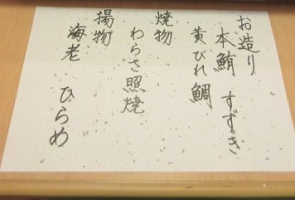 お造り
本鮪 すずき
黄ひれ鯛
焼物
わらさ照焼
揚物
海老 ひらめ